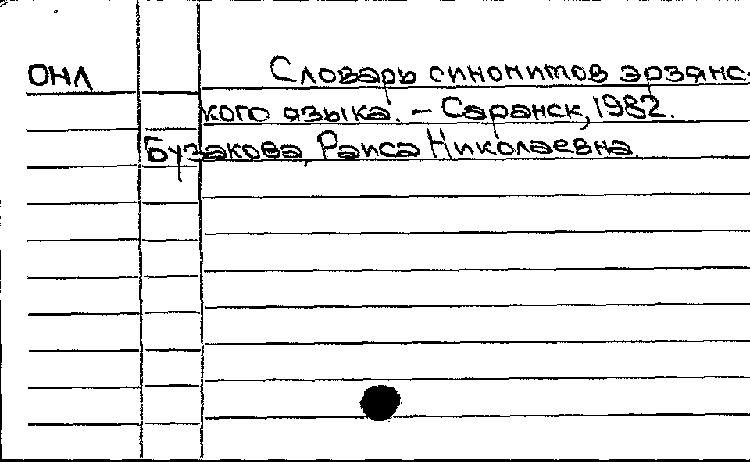 ОНЛ Словарь синонимов эрзянс-
кого языка. – Саранск, 1982.
Бузакова, Раиса Николаевна.